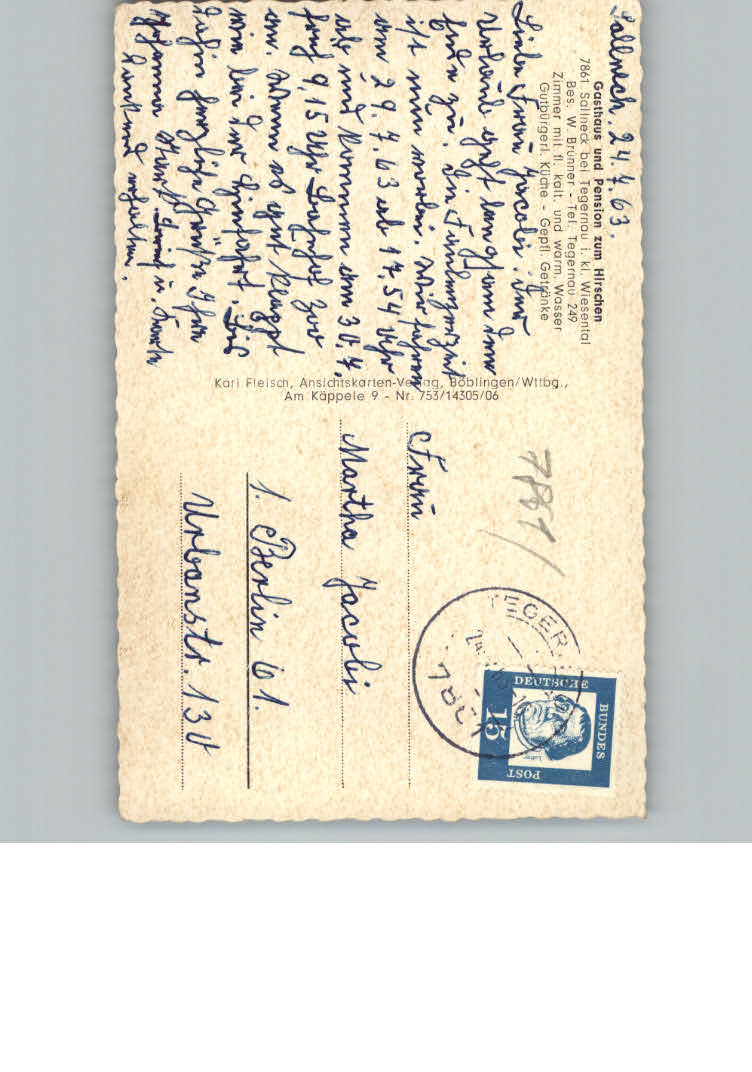 Gasthaus und Pension zum Hirschen
7861 Sallneck bei Tegernau i. kl. Wiesental
Bes. W. Brunner - Tel. Tegernau 249
Zimmer mit fl. kalt. und warm. Wasser
Gutbürgerl. Küche - Gepfl. Getränke
Sallneck. 24.7.63.
Liebe Frau Jacobi. Der
Urlaub geht langsam dem
Ende zu. Die
ist nun vorbei. Wir fahren
am 29.7.63 ab 17,54 Uhr
ab und kommen am 30.7.
früh 9,15 Uhr Bahnhof Zoo
an. Wenn es gut klappt
wie bei der Hinfahrt. Bis
dahin herzliche Grüße Ihre
Johanna u. Karte
dankend erhalten.
Karl Fleisch, Ansichtskarten-Verlag, Böblingen/Wttbg.,
Am Käppele 9 - Nr. 753/14305/06
7861/
Frau
Martha Jacobi
1. Berlin 61.
Urbanstr. 130
TEGER
DEUTSCHE
BUNDES
POST
15
Luther